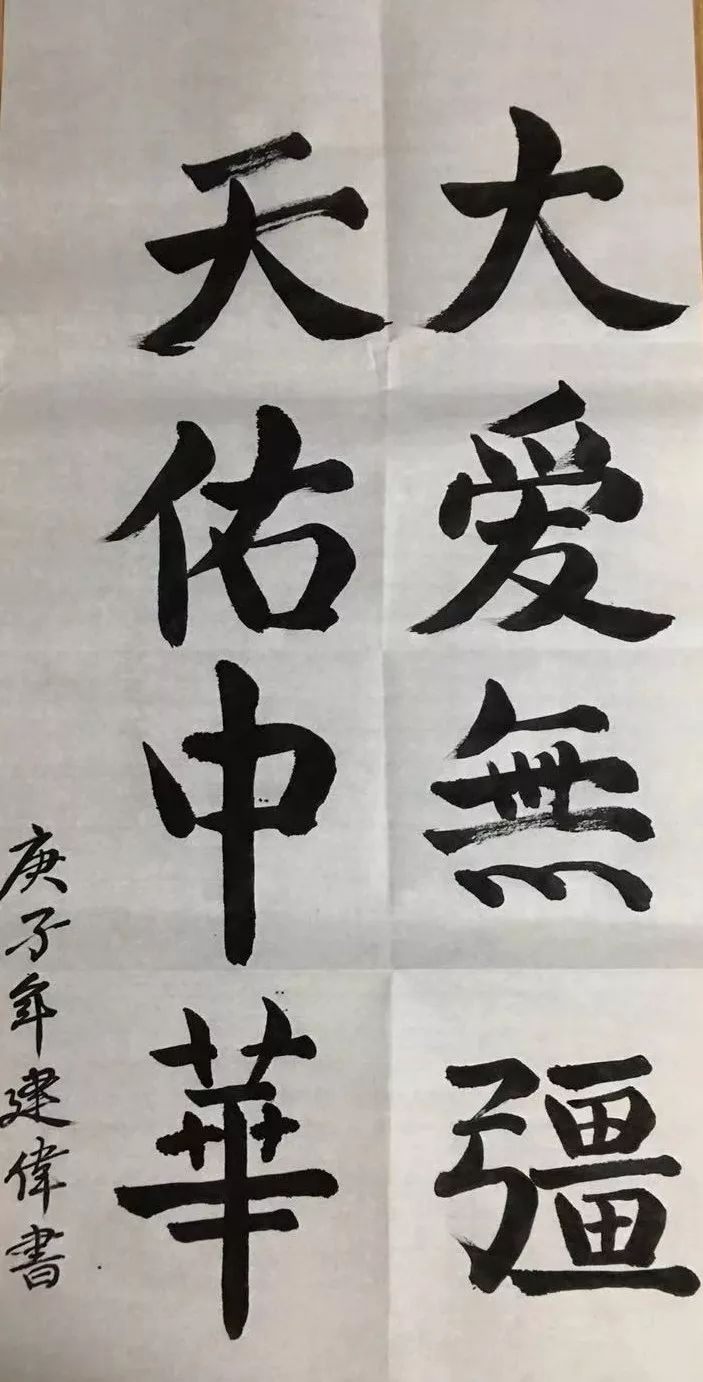 大爱無彊
天佑中華
庚子年建偉書